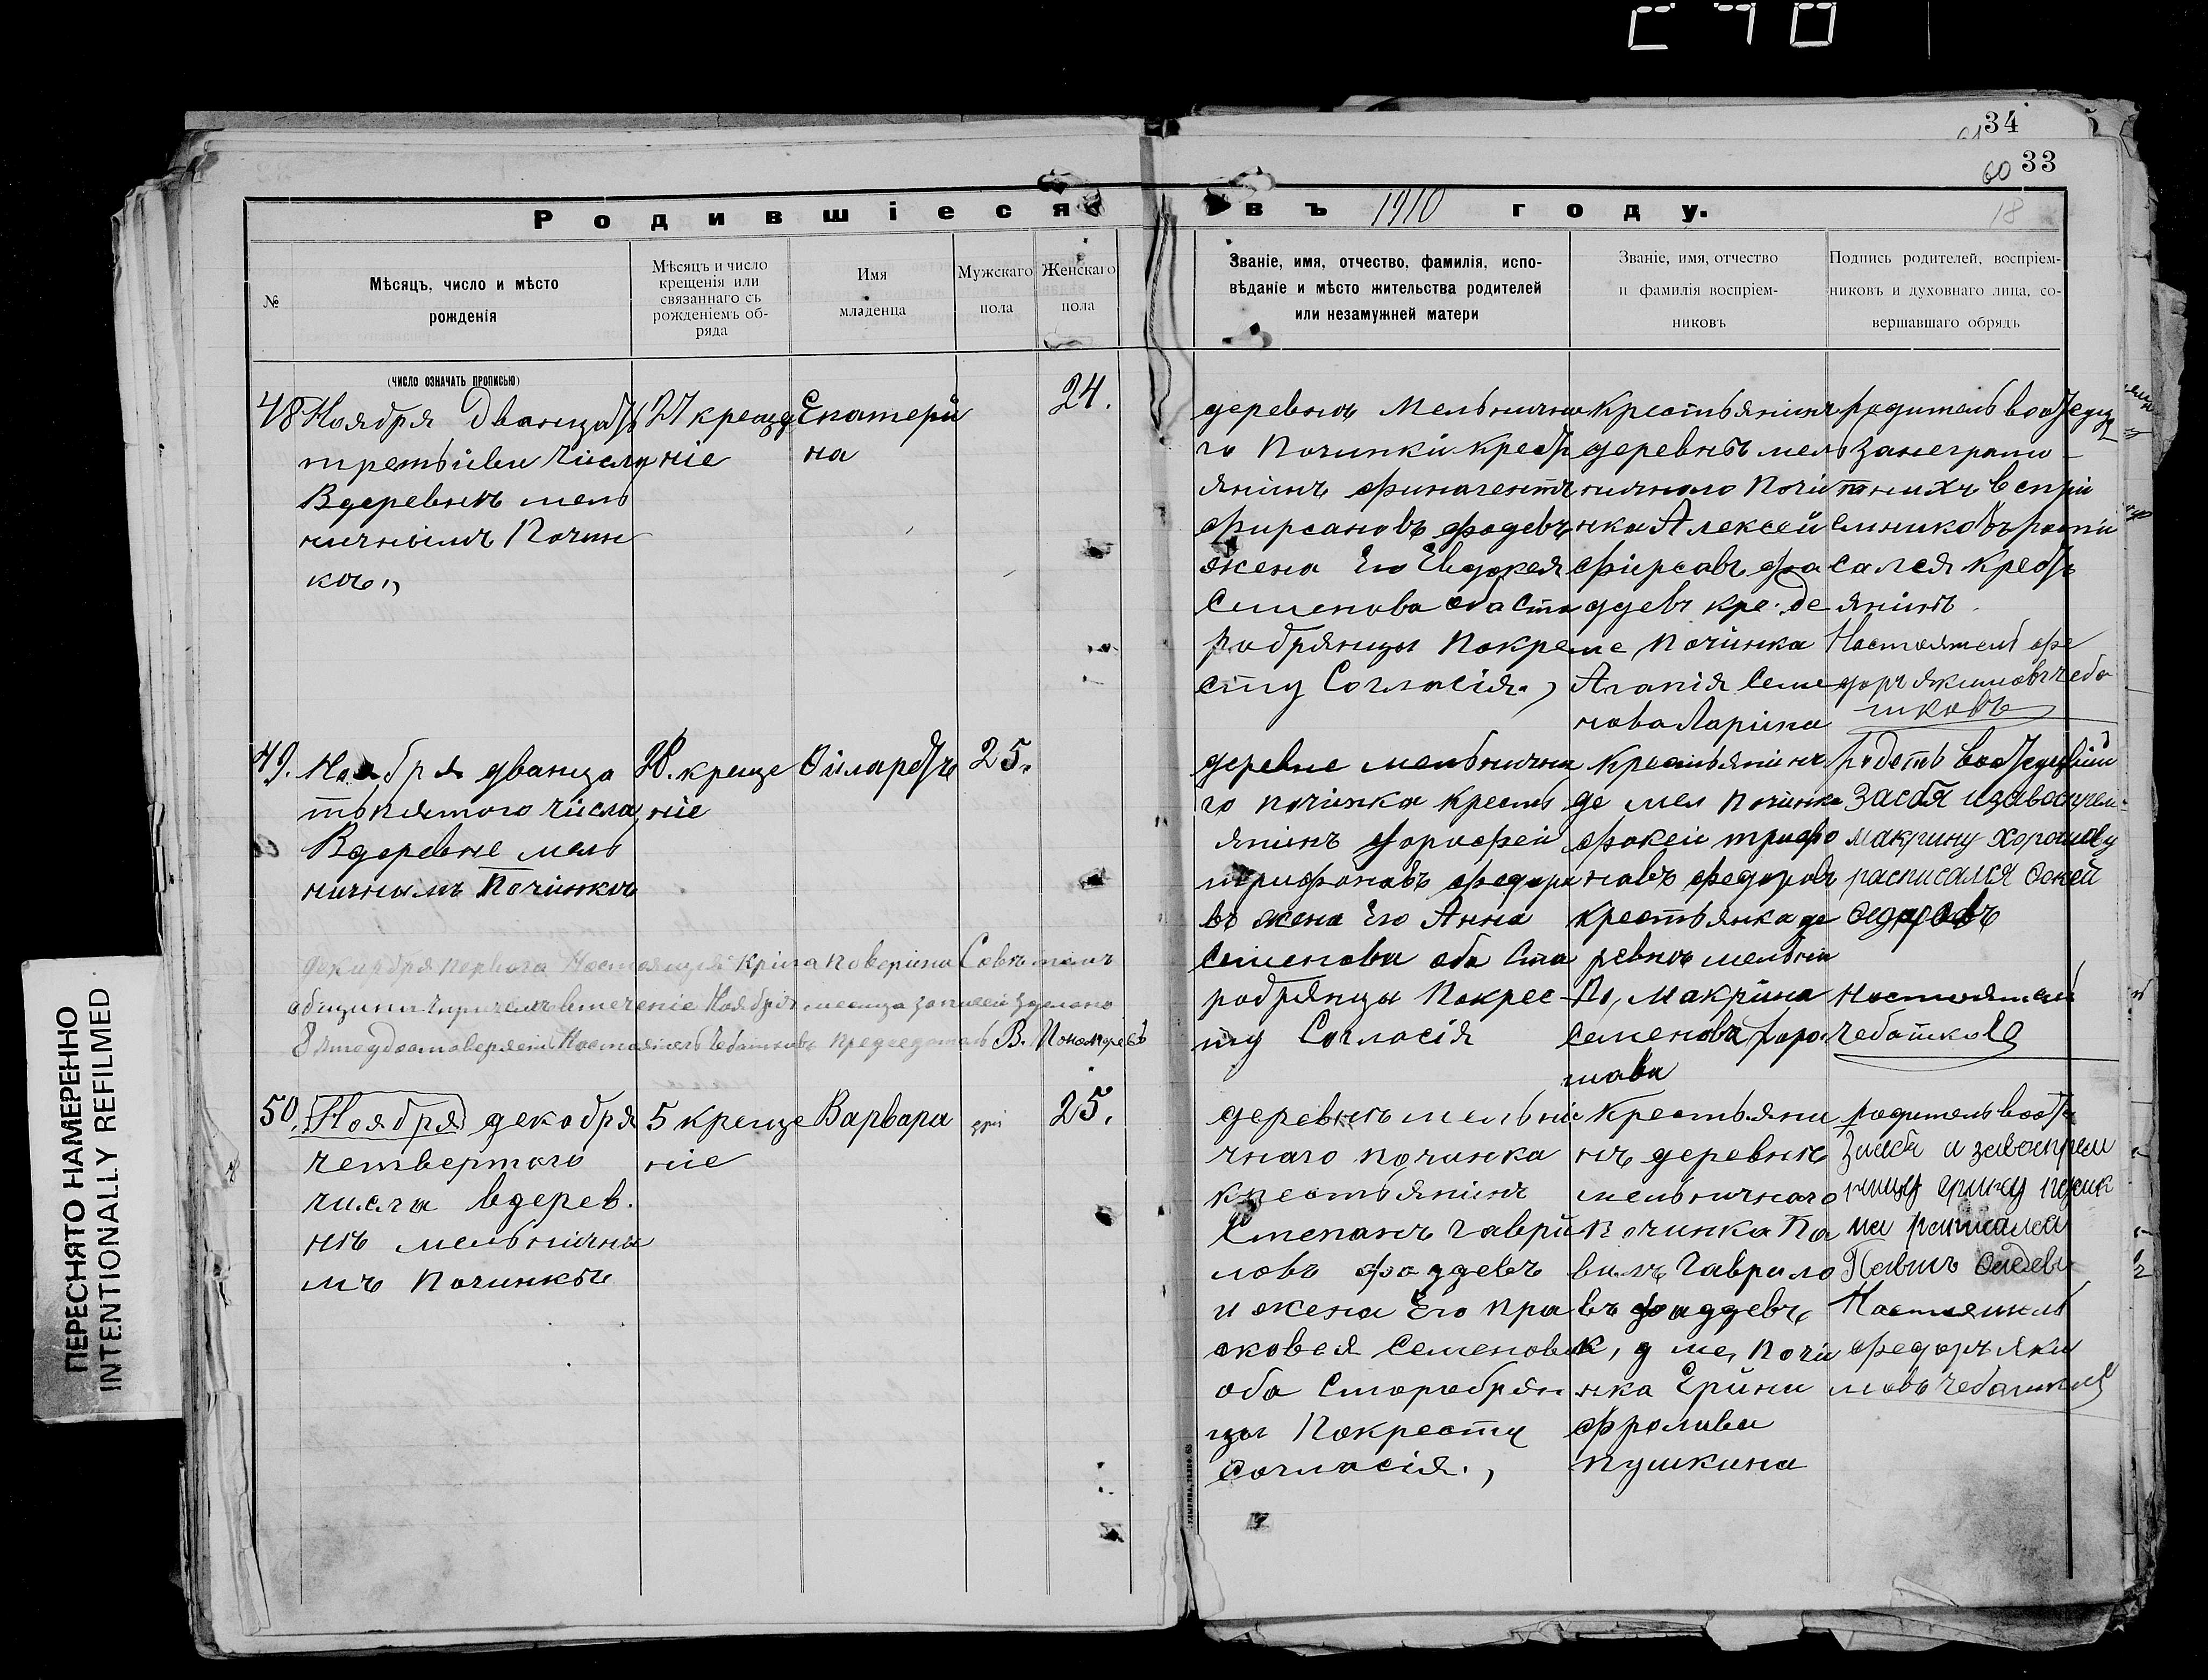 34
60 33
18
Родившіеся въ 1910 году.
№
Мѣсяцъ, число и мѣсто
рожденія
Мѣсяцъ и число
крещенія или
связаннаго съ
рожденіемъ об-
ряда
Имя
младенца
Мужскаго
пола
Женскаго
пола
Званіе, имя, отчество, фамилія, испо-
вѣданіе и мѣсто жительства родителей
или незамужней матери
Званіе, имя, отчество
и фамилія воспріем-
никовъ
Подпись родителей, воспріем-
никовъ и духовнаго лица, со-
вершавшаго обрядъ
(ЧИСЛО ОЗНАЧАТЬ ПРОПИСЬЮ)
48
Ноября Дванцать
третьіви числу
Вдеревнѣ мель
ничнымъ Почин
къ.,
27 креще
ніе
Екатери
на
24.
деревнѣ Мельнична
го Починки крест
янинъ
Фирсановъ фадевъ
жена Его Евдокея
Семенова оба Ста
робрянцы Покре
сту Согласія.,
Крестьянинъ
деревнѣ мель
ничного Почи
нка Алексей
Фирсавъ фа
ддевъ кре. де
ме, Починка
Агапія Семе
нова Ларина
родитель
занеграмо
тныхъ
распи
сался крест
янинъ.
Настоятель фе
доръ якимовъ чеба
шковъ
49.
Ноября дванца
тьпятого числа,
Вдеревне мель
ничнымъ Починкѣ
28. креще
ніе
Филаретъ
25.
деревне мельнична
го починка кресть
янинъ Дорофей
трифоновъ федоро
въ жена Его Анна
Семенова оба Ста
робрянцы Покрес
ту Согласія
Крестьянинъ
де мел Починка
фокеи трифо
новъ федоровъ
крестьянка де
ревнѣ мельни
По, Макрина
Семенова Хоро
шава
засобя
макрину хорошаву
расписался Фокей
Федоровъ
Настоятель
Чебашковъ
декабря первого Настоящая книга поверіна Советомъ
общины причемъ втеченіе Ноября месяца записей зделано
8 Настоятель Чебашковъ председатель В. Пономаревъ
50.
Ноября декабря
четвертого
числа вдерев.
нѣ мельничны
мъ Починкѣ
5 креще
ніе
Варвара
25.
деревнѣ мельни
чнаго починка
крестьянинъ
Степанъ Гаври
ловъ фаддевъ
и жена Его пра
сковея Семенова
оба Старобрян
цы Покресту
Согласія.,
Крестьяни
нъ деревнѣ
мельничнаго
починка Па
велъ Гаврило
въ фаддевъ,
к, д ме, Почи
нка Ерина
Фролива
пушкина
родитель
Павелъ Фадевъ
Настоятель
федоръ яки
мовъ Чебашковъ
ПЕРЕСНЯТО НАМЕРЕННО
INTENTIONALLY REFILMED